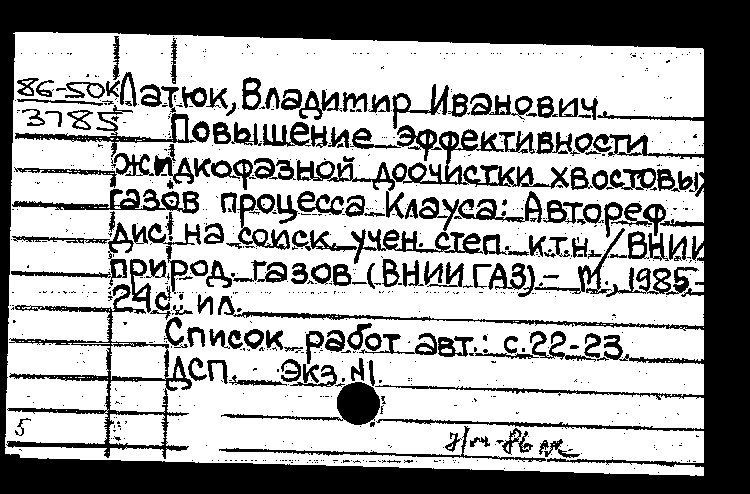 86-50к Латюк, Владимир Иванович.
3785 Повышение эффективности
жидкофазной доочистки хвостовых
газов процесса Клауса: Автореф.
дис. на соиск. учен. степ. к.т.н. / ВНИИ
природ. газов (ВНИИГАЗ).- М., 1985.-
24с.: ил.
Список работ авт.: с.22-23.
ДСП. Экз.N1.
5